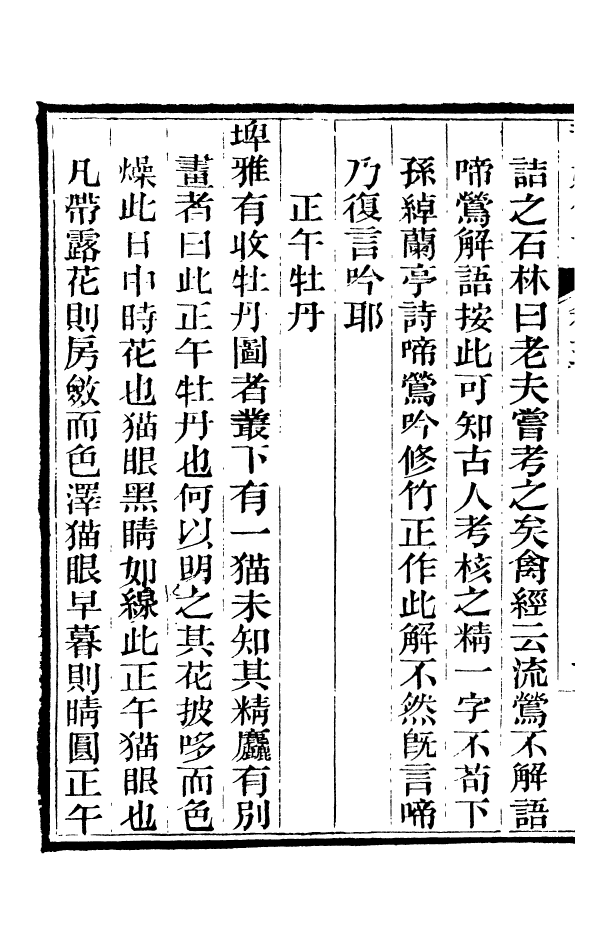 詰之石林曰老夫嘗考之矣禽經云流鶯不解語
啼鶯解語按此可知古人考核之精一字不苟下
孫綽蘭亭詩啼鶯吟修竹正作此解不然旣言啼
乃復言吟耶
正午牡丹
埤雅有收牡丹圖者叢下有一猫未知其精麤有別
畫者曰此正午牡丹也何以明之其花披哆而色
燥此日中時花也猫眼黑睛如線此正午猫眼也
凡帶露花則房斂而色澤猫眼早暮則睛圓正午